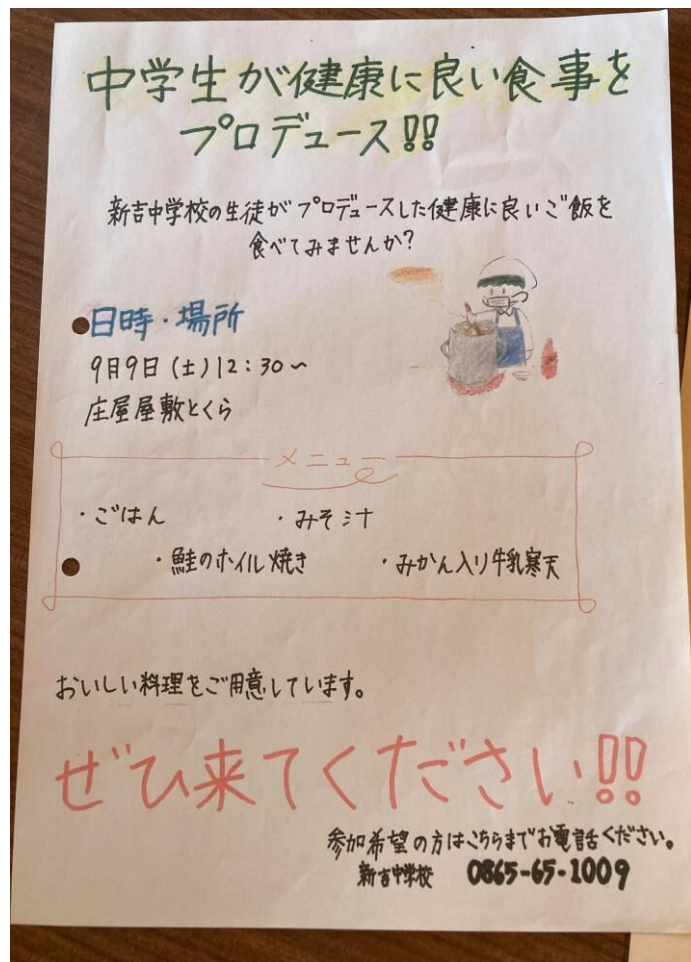 中学生が健康に良い食事を
プロデュース!!
新吉中学校の生徒がプロデュースした健康に良いご飯を
食べてみませんか?
日時・場所
9月9日(土)12:30~
庄屋屋敷とくら
メニュー
・ごはん ・みそ汁
・鮭のホイル焼き ・みかん入り牛乳寒天
おいしい料理をご用意しています。
ぜひ来てください!!
参加希望の方はこちらまでお電話ください。
新吉中学校 0865-65-1009